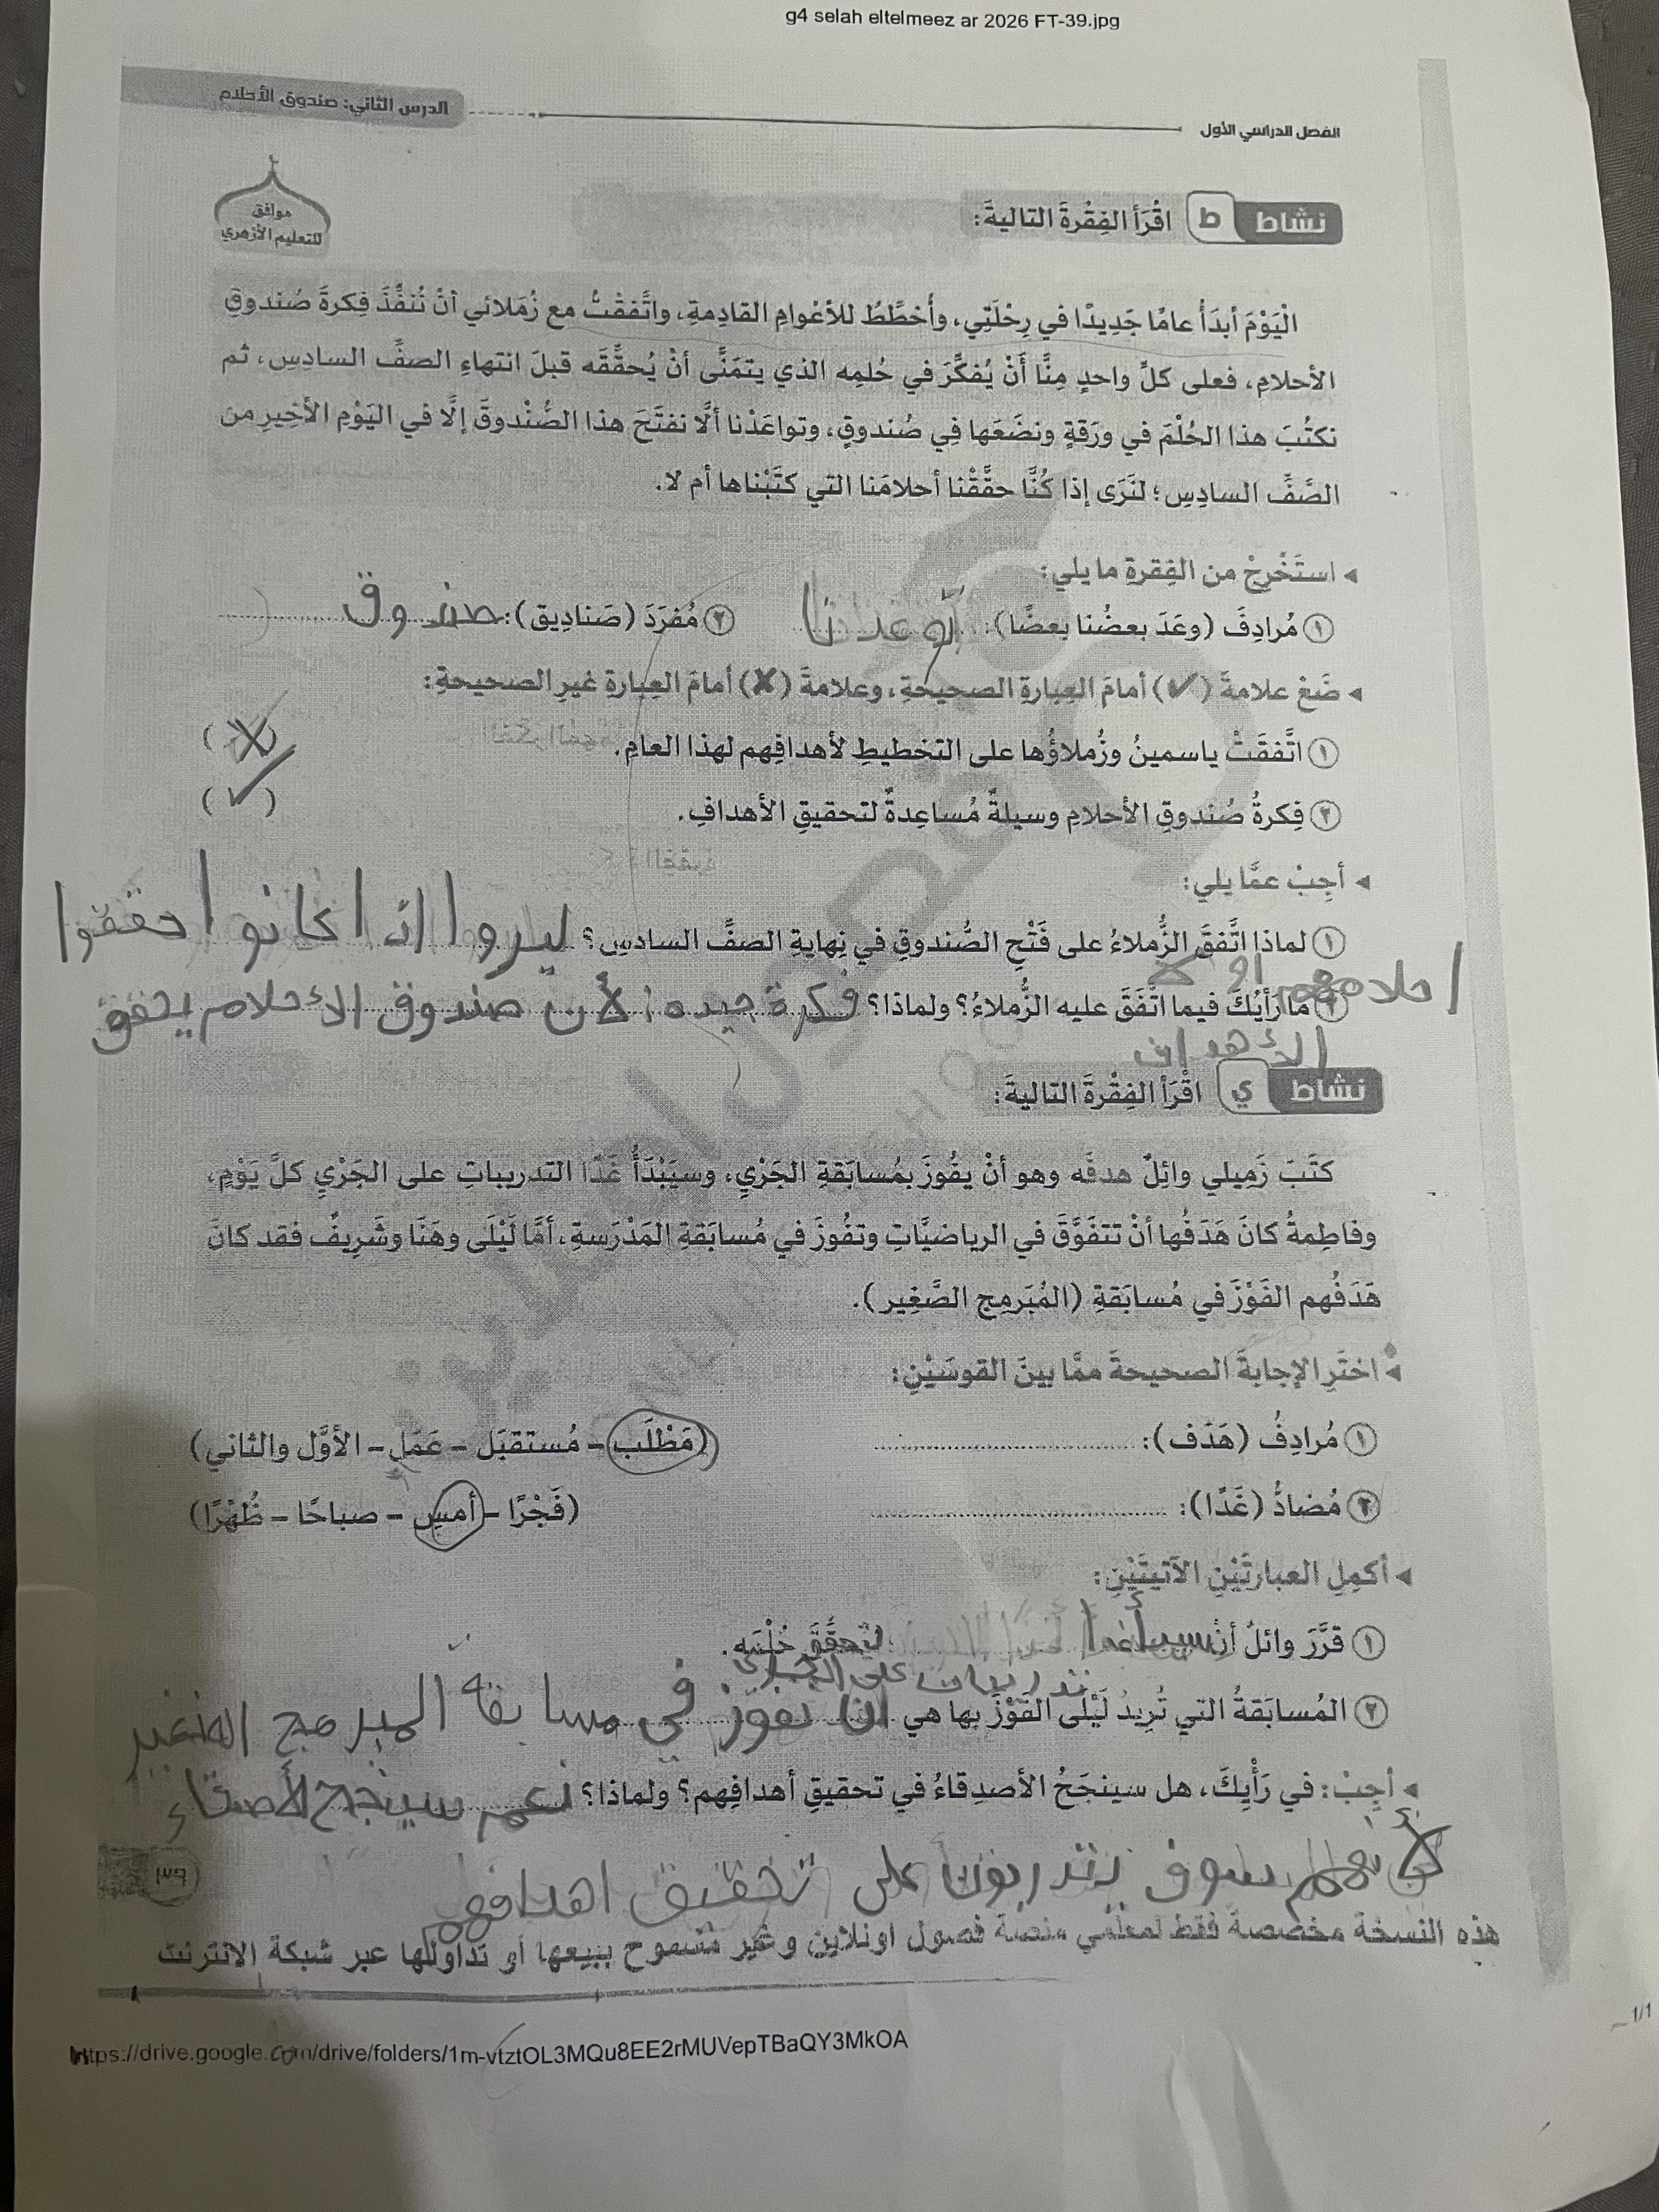 g4 selah eltelmeez ar 2026 FT-39.jpg
الفصل الدراسي الأول
الدرس الثاني: صندوق الأحلام
نشاط ط اقْرَأ الفِقْرةَ التاليةَ:
موافق
للتعليم الأزهري
الْيَوْمَ أبدَأُ عامًا جَدِيدًا في رِحْلَتِي، وأُخطِّطُ للأعْوامِ القادِمةِ، واتَّفقْتُ مع زُمَلائي أنْ نُنفِّذَ فِكرةَ صُندوقِ
الأحلامِ، فعلى كلِّ واحدٍ مِنَّا أَنْ يُفكِّرَ في حُلمِه الذي يتمَنَّى أنْ يُحقِّقَه قبلَ انتهاءِ الصفِّ السادِسِ، ثم
نكتُبَ هذا الحُلْمَ في ورَقةٍ ونضَعَها فِي صُندوقٍ، وتواعَدْنا ألَّا نفتَحَ هذا الصُّندوقَ إلَّا في اليَوْمِ الأخيرِ من
الصَّفِّ السادِسِ؛ لنَرَى إذا كُنَّا حقَّقْنا أحلامَنا التي كتَبْناها أم لا.
◂ استَخْرِجْ من الفِقرةِ ما يلي:
١ مُرادِفَ (وعَدَ بعضُنا بعضًا): توعدنا
٢ مُفرَدَ (صَنادِيق): صندوق
◂ ضَعْ علامةَ (✓) أمامَ العِبارةِ الصحيحةِ، وعلامةَ (✗) أمامَ العِبارةِ غيرِ الصحيحةِ:
١ اتَّفقَتْ ياسمينُ وزُملاؤُها على التخطيطِ لأهدافِهم لهذا العامِ. (✗)
٢ فِكرةُ صُندوقِ الأحلامِ وسيلةٌ مُساعِدةٌ لتحقيقِ الأهدافِ. (✓)
◂ أجِبْ عمَّا يلي:
١ لماذا اتَّفقَ الزُّملاءُ على فَتْحِ الصُّندوقِ في نِهايةِ الصفِّ السادسِ؟ ليروا اذا كانوا حققوا
احلامهم ام لا
٢ ما رَأيُكَ فيما اتَّفَقَ عليه الزُّملاءُ؟ ولماذا؟ فكرة جيده؛ لأن صندوق الأحلام يحقق
الأهداف
نشاط ي اقْرَأ الفِقْرةَ التاليةَ:
كتَبَ زَمِيلي وائِلٌ هدفَه وهو أنْ يفُوزَ بمُسابَقةِ الجَرْيِ، وسيَبْدَأُ غَدًا التدريباتِ على الجَرْيِ كلَّ يَوْمٍ،
وفاطِمةُ كانَ هَدَفُها أنْ تتفَوَّقَ في الرياضيَّاتِ وتفُوزَ في مُسابَقةِ المَدْرَسةِ، أمَّا لَيْلَى وهَنَا وشَرِيفٌ فقد كانَ
هَدَفُهم الفَوْزَ في مُسابَقةِ (المُبَرمِجِ الصَّغِير).
◂ اختَرِ الإجابةَ الصحيحةَ ممَّا بينَ القوسَيْنِ:
١ مُرادِفُ (هَدَف): (مَطْلَب – مُستقبَل – عَمَل – الأوَّل والثاني)
٢ مُضادُّ (غَدًا): (فَجْرًا – أمسِ – صباحًا – ظُهْرًا)
◂ أكمِلِ العبارتَيْنِ الآتيتَيْنِ:
١ قرَّرَ وائلٌ أنْ سيبدأ غدا ليُحقِّقَ حُلْمَه.
تدريبات على الجري
٢ المُسابَقةُ التي تُرِيدُ لَيْلَى الفَوْزَ بها هي ان تفوز في مسابقة المبرمج الصغير
◂ أجِبْ: في رَأْيِكَ، هل سينجَحُ الأصدِقاءُ في تحقيقِ أهدافِهم؟ ولماذا؟ نعم سينجح الأصدقاء
لأنهم سوف يتدربون على تحقيق اهدافهم
٣٩
هذه النسخة مخصصة فقط لمعلمي منصة فصول اونلاين وغير مسموح ببيعها أو تداولها عبر شبكة الانترنت
1/1
https://drive.google.com/drive/folders/1m-vtztOL3MQu8EE2rMUVepTBaQY3MkOA